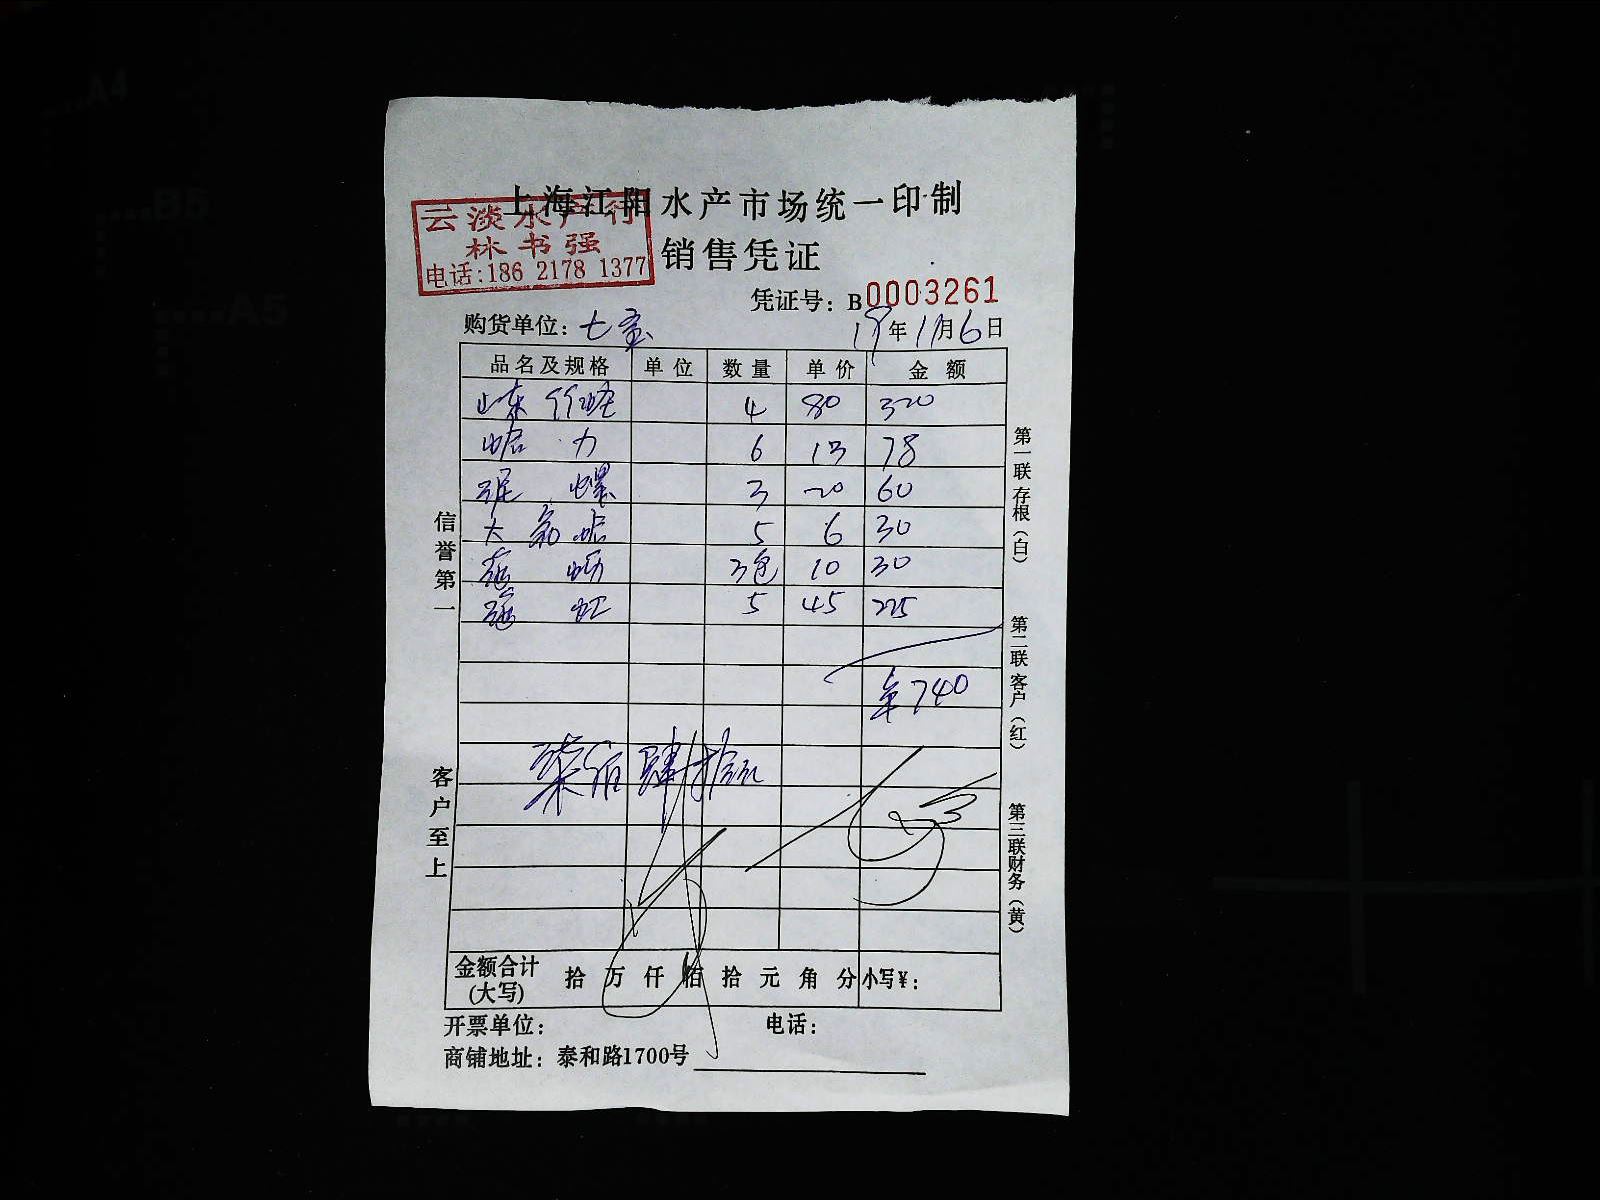 上海江阳水产市场统一印制
云淡水产行
林书强
电话:186 2178 1377
销售凭证
凭证号: B0003261
购货单位: 七宝 19年11月6日
品名及规格 单位 数量 单价 金额
山东竹蛏 4 80 320
蛤力 6 13 78
泥螺 3 20 60
大 蛤 5 6 30
3包 10 30
5 45 225
¥740
柒佰肆拾元
金额合计(大写) 拾 万 仟 佰 拾 元 角 分 小写¥:
开票单位: 电话:
商铺地址: 泰和路1700号
信誉第一
客户至上
第一联 存根(白)
第二联 客户(红)
第三联 财务(黄)